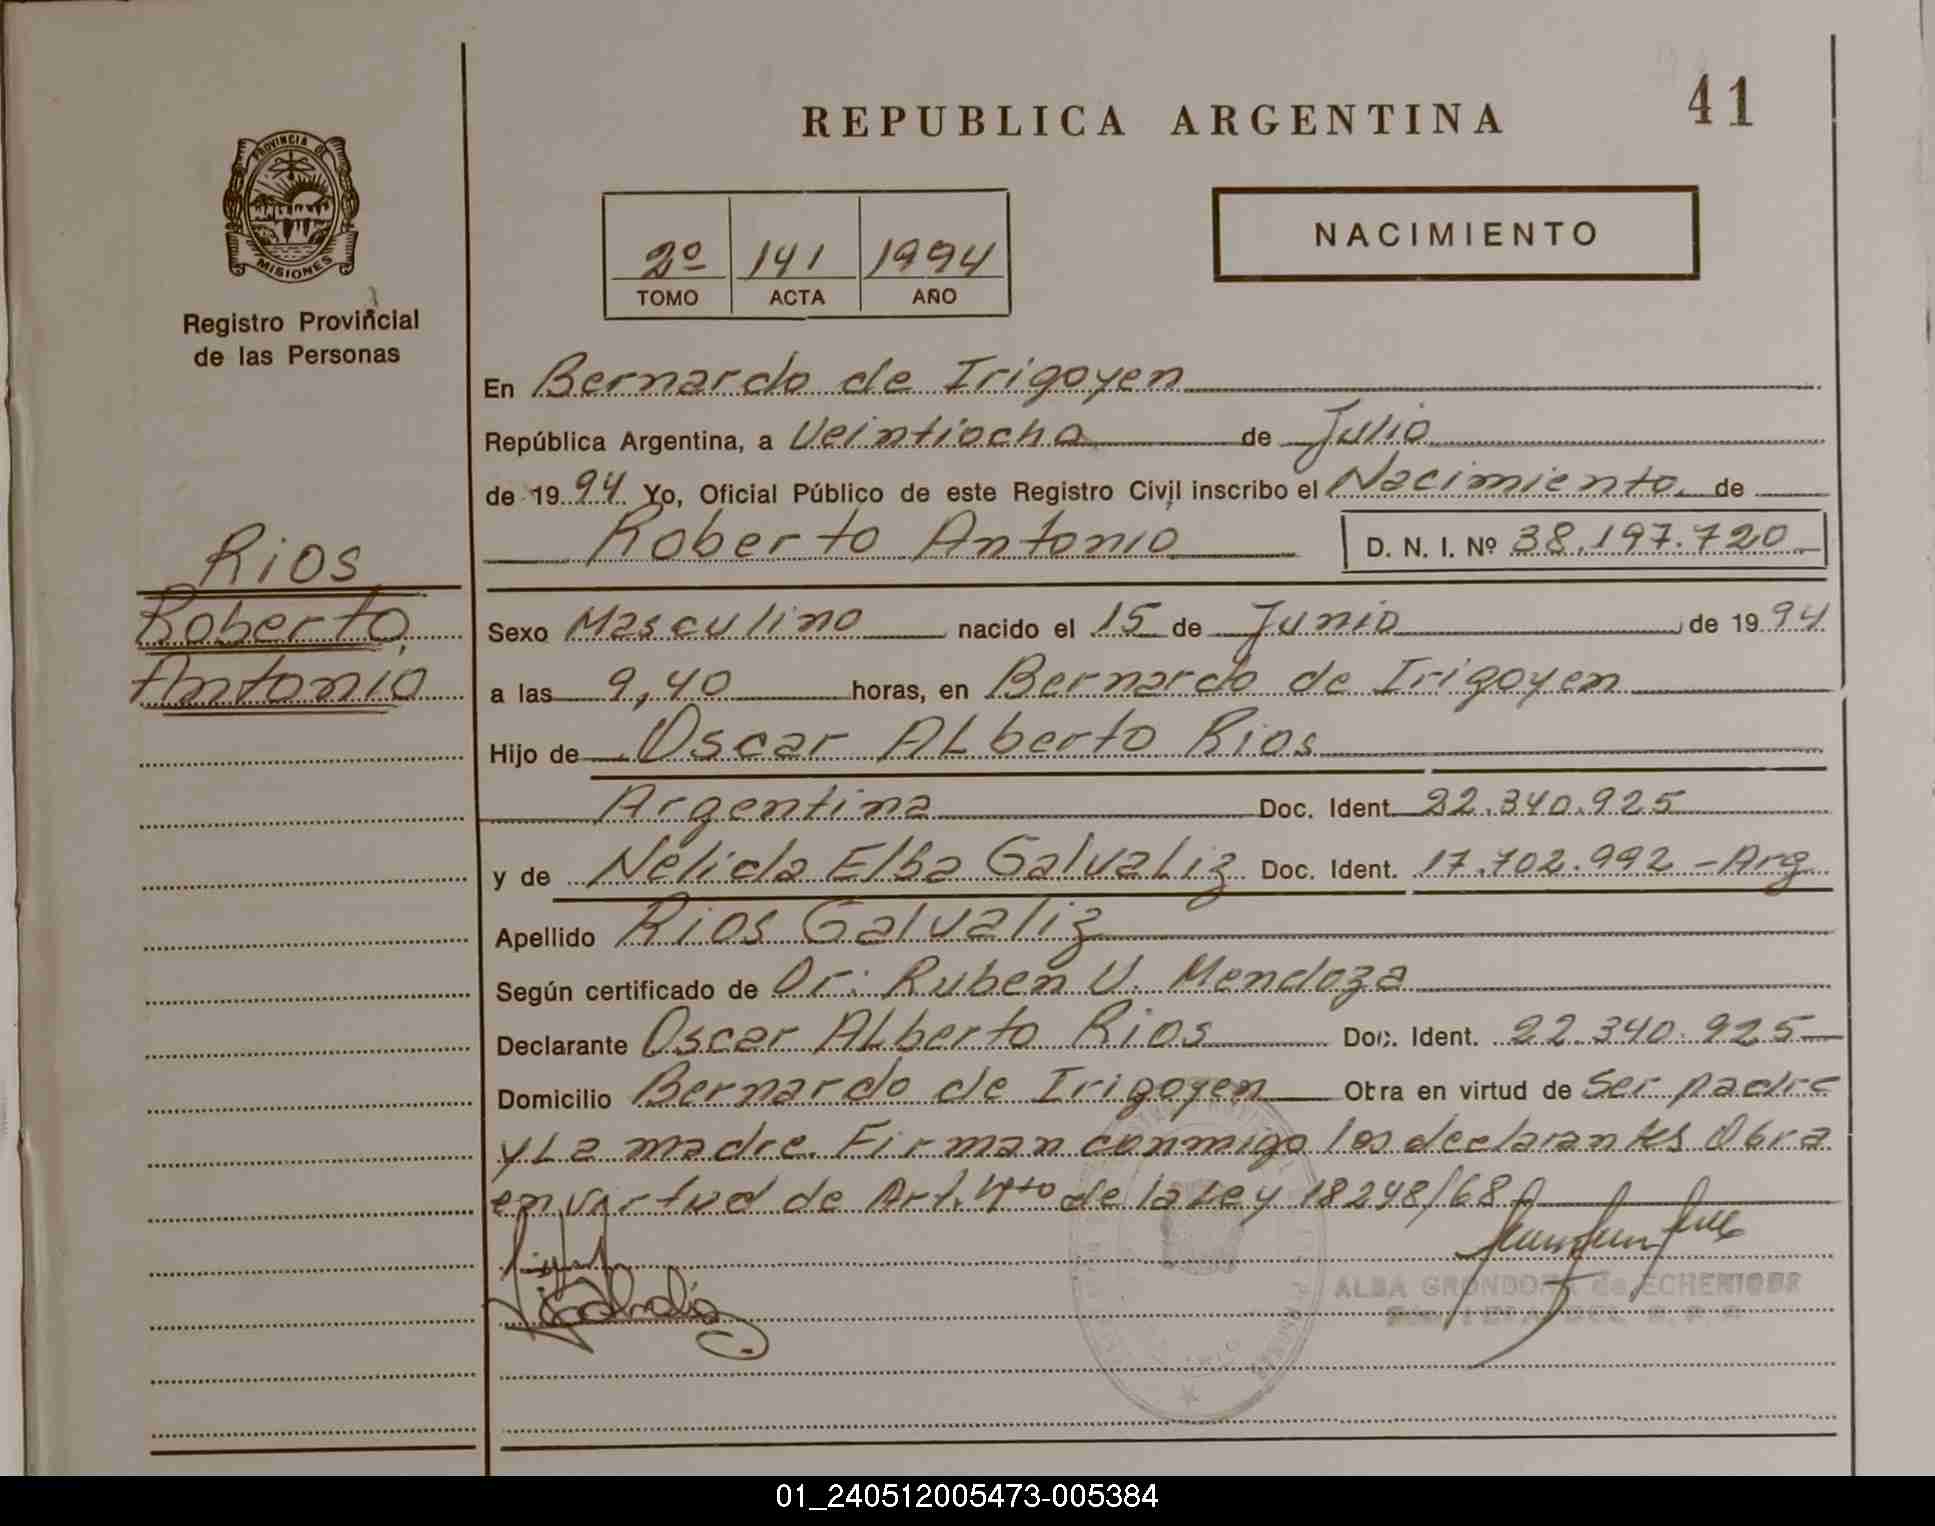 REPUBLICA ARGENTINA
41
PROVINCIA DE
MISIONES
Registro Provincial
de las Personas
2º 141 1994
TOMO ACTA AÑO
NACIMIENTO
En Bernardo de Irigoyen
República Argentina, a Veintiocho de Julio
de 1994 Yo, Oficial Público de este Registro Civil inscribo el Nacimiento de
Roberto Antonio D. N. I. Nº 38.197.720
Rios
Roberto
Antonio
Sexo Masculino nacido el 15 de Junio de 1994
a las 9,40 horas, en Bernardo de Irigoyen
Hijo de Oscar ALberto Rios
Argentina Doc. Ident 22.340.925
y de Nelida Elba Galvaliz Doc. Ident. 17.702.992 - Arg
Apellido Rios Galvaliz
Según certificado de Dr: Ruben V. Mendoza
Declarante Oscar ALberto Rios Doc. Ident. 22.340.925
Domicilio Bernardo de Irigoyen Obra en virtud de Ser padre
y La madre. Firman conmigo los declarantes Obra
en virtud de Art. 4to de la Ley 18248/68
ALBA GRONDONA de ECHENIQUE
01_240512005473-005384